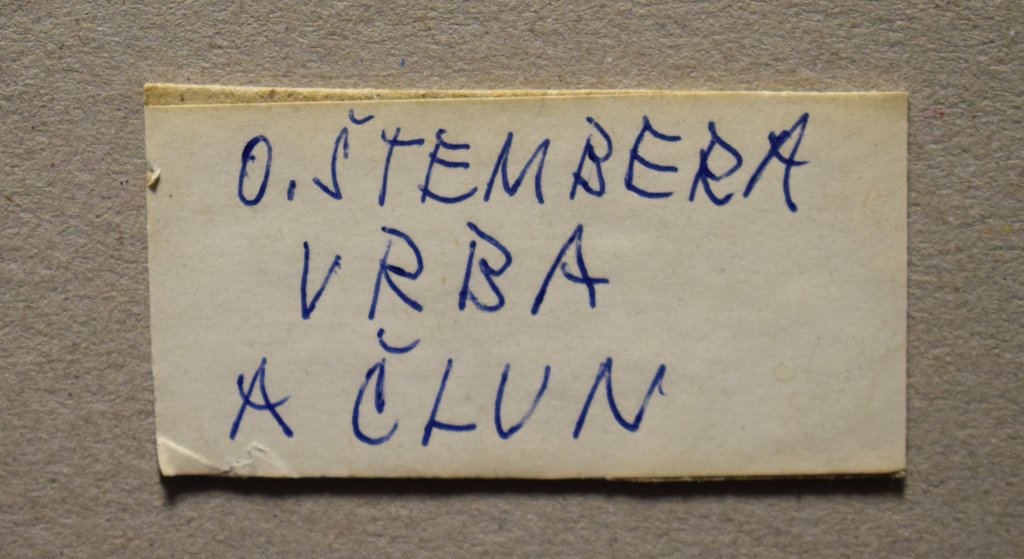 O. ŠTEMBERA
VRBA
A ČLUN